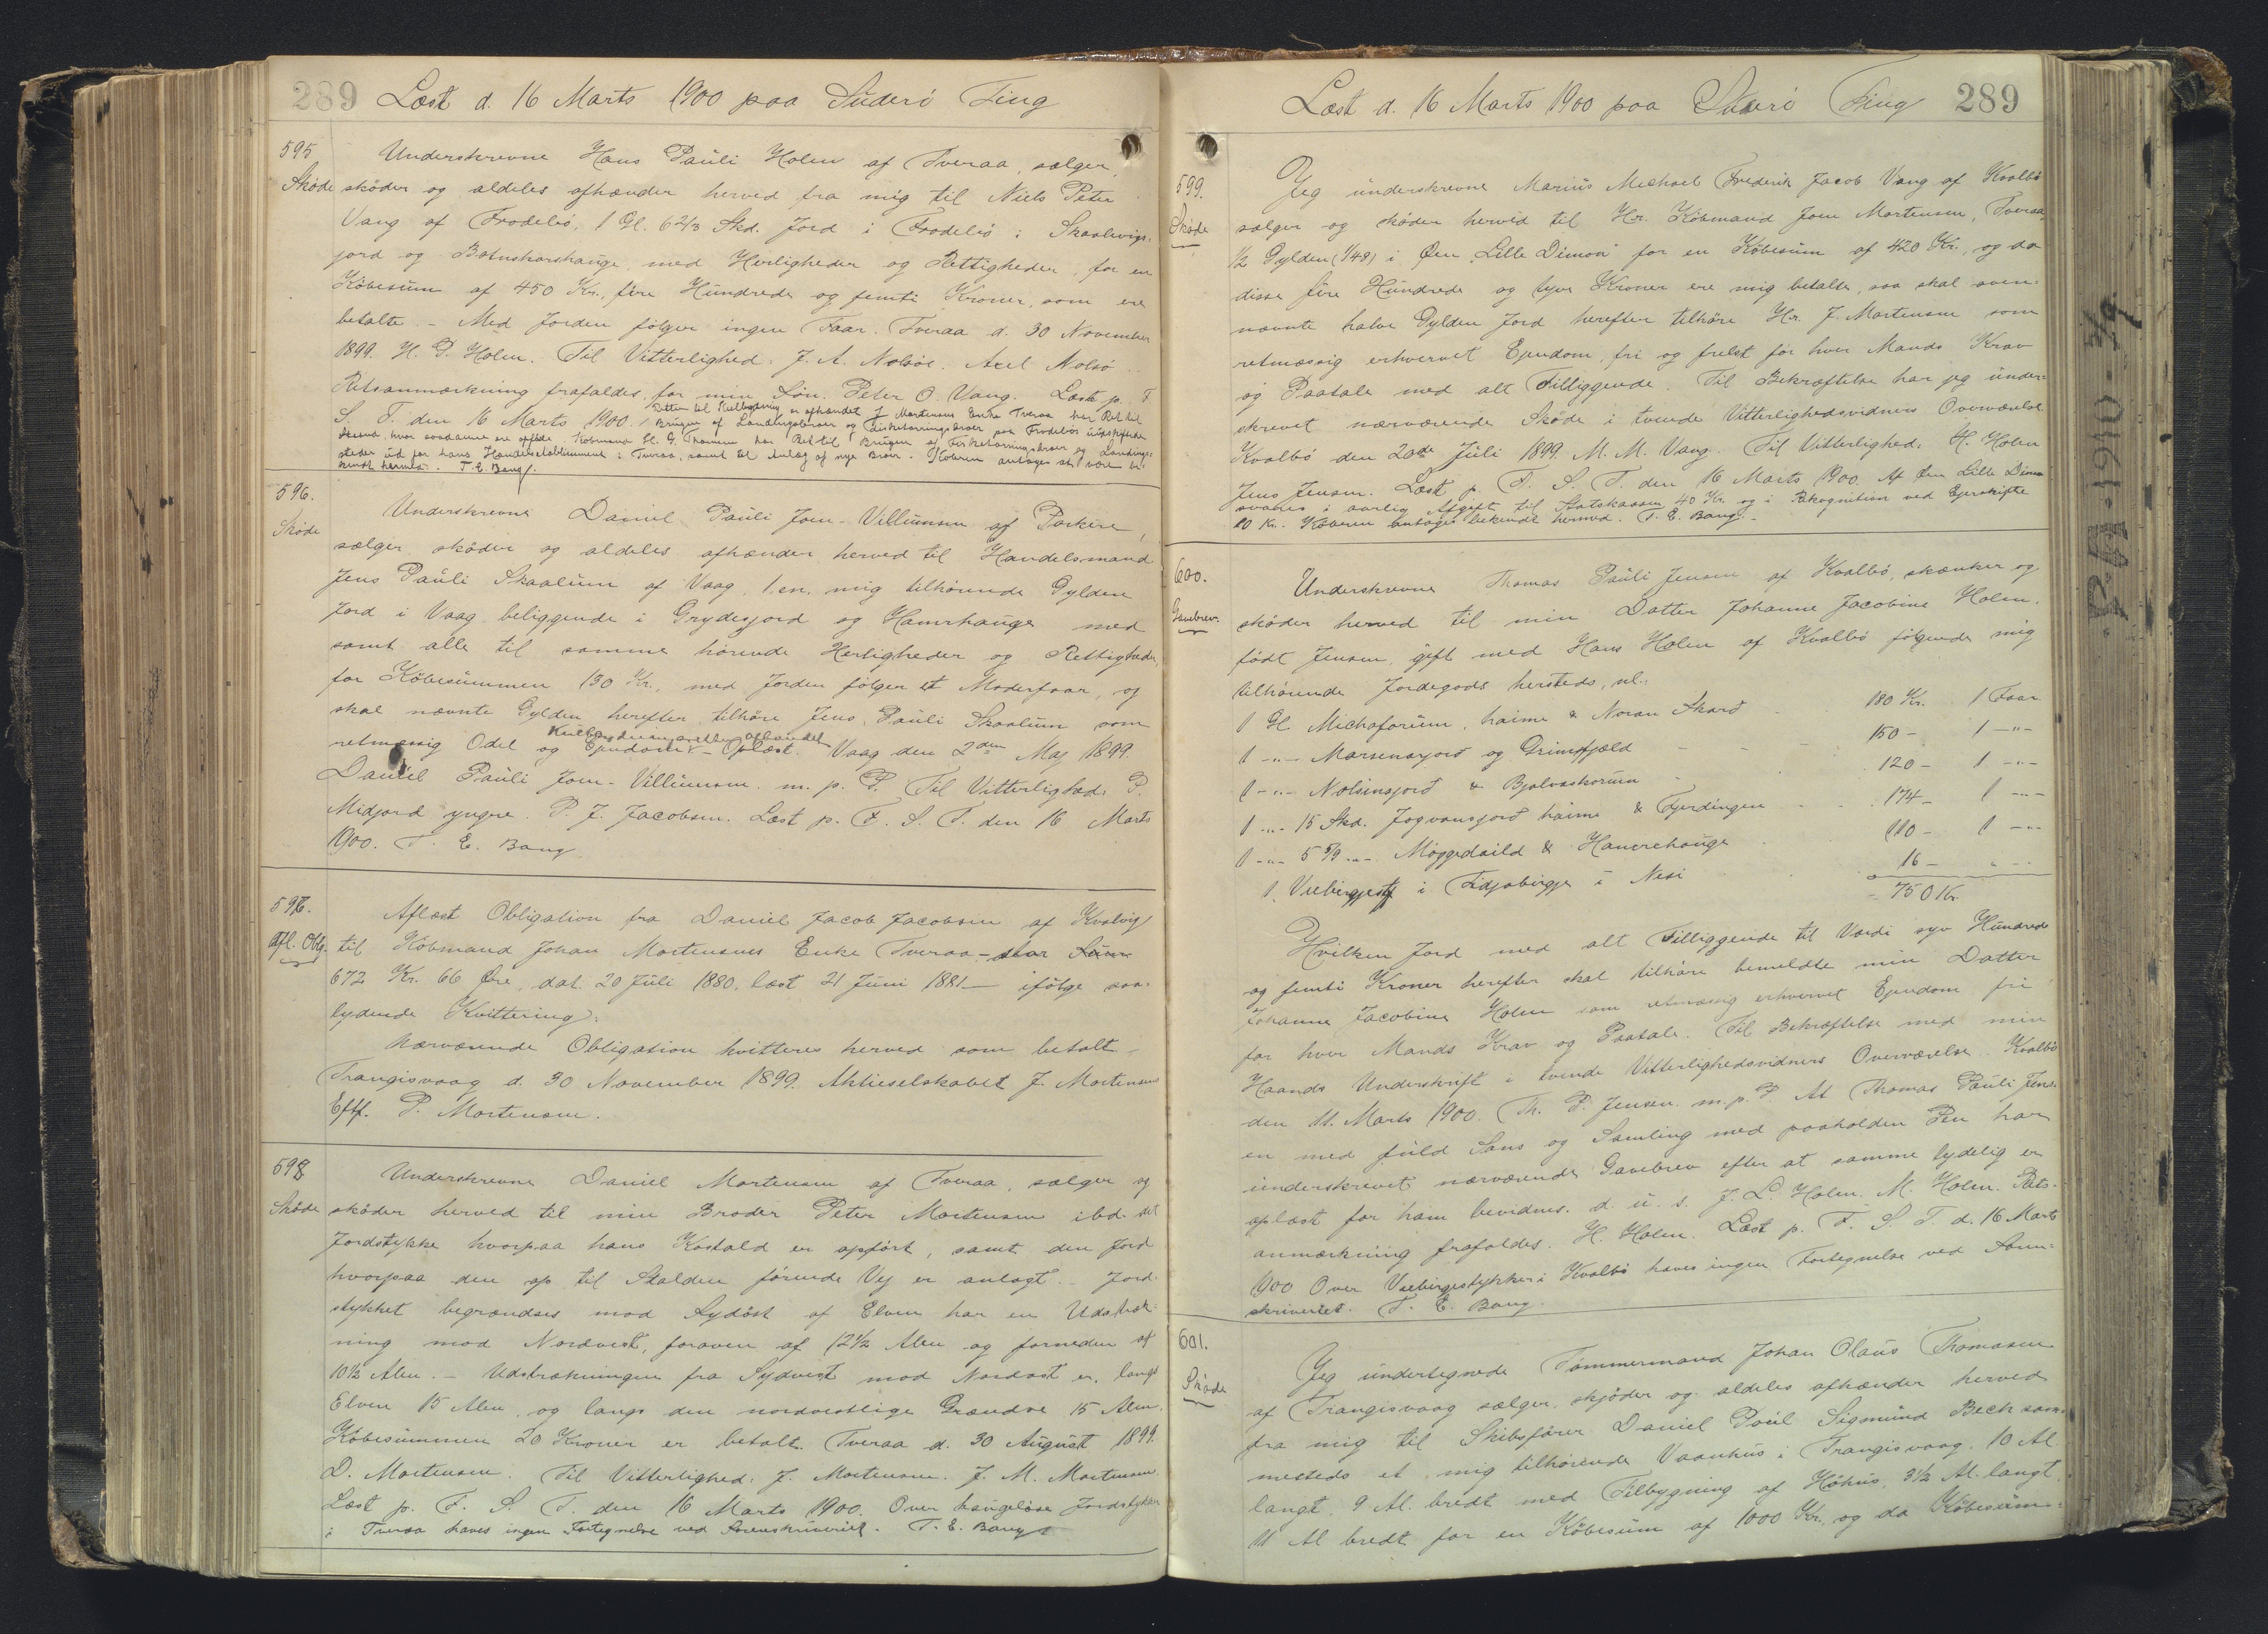 289 Læst d. 16 Marts 1900 paa Süderö Ting
595
Skøde
Underskrevne Hans Paüli Holm af Tveraa, sælger,
skøder og aldeles afhænder herved fra mig til Niels Peter
Vang af Frodebø, 1 Gl. 6 2/3 Skd. Jord i Frodebø i Skaalevigs-
jord og Botnsharshauge med Herligheder og Rettigheder, for en
Købesüm af 450 Kr., fire Hündrede og femti Kroner, som ere
betalte. - Med Jorden følger ingen Faar. Tveraa d. 30 November
1899. H. P. Holm. Til Vitterlighed: J. A. Nolsöe. Axel Nolsö.
Retsanmærkning frafaldes for min Søn. Peter O. Vang. Læst p. F.
S. T. den 16 Marts 1900. / Retten til Kulbrydning er afhændet J Mortensens Enke Tveraa har Ret til
Brugen af Landingsbroer og Fisketørringsbroer paa Frodebøs üüdskiftede
Mark, hvor saadanne ere opførte. Købmand H. G. Thomsen har Ret til Brugen af Fisketørringsbroer og Landings-
steder üd for hans Handelsetablissement i Tveraa, samt til Anlæg af nye Broer. Køberen antages at være be-
kendt hermed. T. E. Bang/.
596.
Skøde
Underskrevne Daniel Paüli Joen-Villümsen af Porkere,
sælger skøder og aldeles afhænder herved til Handelsmand
Jens Paüli Skaalüm af Vaag, 1. en, mig tilhørende Gylden
Jord i Vaag beliggende i Grydesjord og Hamrhauge med
samt alle til samme hørende Herligheder og Rettigheder,
for Købesümmen 130 Kr., med Jorden følger et Moderfaar, og
skal nævnte Gylden herefter tilhøre Jens Paüli Skaalüm som
retmæssig Odel og Ejendom. - Oplæst. Vaag den 2den Maj 1899.
Kulbrydningsretten afhændet
Daniel Paüli Joen-Villümsen. m. p. P. Til Vitterlighed: P.
Midjord yngre. P. J. Jacobsen. Læst p. F. S. T. den 16 Marts
1900. T. E. Bang
597.
Afl. Oblg.
Aflæst Obligation fra Daniel Jacob Jacobsen af Kvalvig
til Købmand Johan Mortensens Enke Tveraa - stor
672 Kr. 66 Øre, dat. 20 Jüli 1880, læst 21 Jüni 1881 - ifølge saa-
lydende Kvittering:
Nærværende Obligation kvitteres herved som betalt -
Trangisvaag d. 30 November 1899. Aktieselskabet J. Mortensens
Eftf. P. Mortensen.
598
Skøde
Underskrevne Daniel Mortensen af Tveraa, sælger og
skøder herved til min Broder Peter Mortensen ibd. det
Jordstykke hvorpaa hans Kostald er opført, samt den Jord
hvorpaa den op til Stalden førende Vej er anlagt. - Jord-
stykket begrændses mod Sydöst af Elven har en Udstræk-
ning mod Nordvest, foroven af 12½ Alen og forneden af
10½ Alen. - Udstrækningen fra Sydvest mod Nordöst er langs
Elven 15 Alen, og langs den nordvestlige Grændse 15 Alen.
Købesümmen 20 Kroner er betalt. Tveraa d. 30 Aügüst 1899.
D. Mortensen. Til Vitterlighed: J. Mortensen. J. M. Mortensen.
Læst p. F. S. T. den 16 Marts 1900. Over haugeløse Jordstykker
i Tveraa haves ingen Fortegnelse ved Sorenskriveriet. T. E. Bang
Læst d. 16 Marts 1900 paa Süderö Ting 289
599.
Skøde
Jeg ünderskrevne Mariüs Michael Frederik Jacob Vang af Kvalbø
sælger og skøder herved til Hr. Købmand Joen Mortensen, Tveraa,
½ Gylden (1/48) i Øen "Lille Dimon" for en Købesüm af 420 Kr., og da
disse fire Hündrede og tyve Kroner ere mig betalte, saa skal oven-
nævnte halve Gylden Jord herefter tilhøre Hr. J. Mortensen som
retmæssig erhvervet Ejendom, fri og frelst for hver Mands Krav
og Paatale med alt Tilliggende. Til Bekræftelse har jeg ünder-
skrevet nærværende Skøde i tvende Vitterlighedsvidners Overværelse.
Kvalbø den 20de Jüli 1899. M. M. Vang. Til Vitterlighed: H. Holm
Jens Jensen. Læst p. F. S. T. den 16 Marts 1900. Af Øen Lille Dimon
svares i aarlig Afgift til Statskassen 40 Kr. og i Rekognition ved Ejerskifte
10 Kr. Køberen antages bekendt hermed. T. E. Bang. -
600.
Gavebrev.
Underskrevne Thomas Paüli Jensen af Kvalbø, skænker og
skøder herved til min Datter Johanne Jacobine Holm.
født Jensen, gift med Hans Holm af Kvalbø følgende mig
tilhørende Jordegods hersteds, nl.:
1 Gl. Michaforüm, haime & Noran Skarð 180 Kr. 1 Faar
1 -"- Marsenasjorð og Grimsfjæld 150 - 1 -"-
1 -"- Nolsinsjorð & Bjolvaskorüm 120 - 1 -"-
1 -"- 15 Skd. Jogvansjorð haime & Fjerdingen 174 - 1 -"-
1 -"- 5 5/9 -"- Møggedaild & Hamrehauge 110 - 1 -"-
1. Veebirgjestø i Fidjabirgje i Nesi 16 - " - -
= 750 Kr.
Hvilken Jord med alt Tilliggende til Værdi syv Hündrede
og femti Kroner herefter skal tilhøre bemeldte min Datter
Johanne Jacobine Holm som retmæssig erhvervet Ejendom fri
for hver Mands Krav og Paatale. Til Bekræftelse med min
Haands Underskrift i tvende Vitterlighedsvidners Overværelse. Kvalbø
den 11. Marts 1900. Th. P. Jensen. m. p. P. At Thomas Paüli Jens-
en med füld Sans og Samling med paaholden Pen har
ünderskrevet nærværende Gavebrev efter at samme lydelig er
oplæst for ham bevidnes. d. ü. s. J. L. Holm. M. Holm. Rets-
anmærkning frafaldes. H. Holm. Læst p. F. S. T. d. 16 Marts
1900 Over Veebirgestykker i Kvalbø haves ingen Fortegnelse ved Soren-
skriveriet. T. E. Bang.
601.
Skøde
Jeg ündertegnede Tømmermand Johan Olaüs Thomasen
af Trangisvaag sælger, skjøder og aldeles afhænder herved
fra mig til Skibsfører Daniel Poül Sigmünd Bech sam-
mesteds et mig tilhørende Vaanhüs i Trangisvaag, 10 Al.
langt, 9 Al. bredt med Tilbygning af Høhüs, 3½ Al. langt,
11 Al bredt for en Købesüm af 1000 Kr. og da Købesüm-